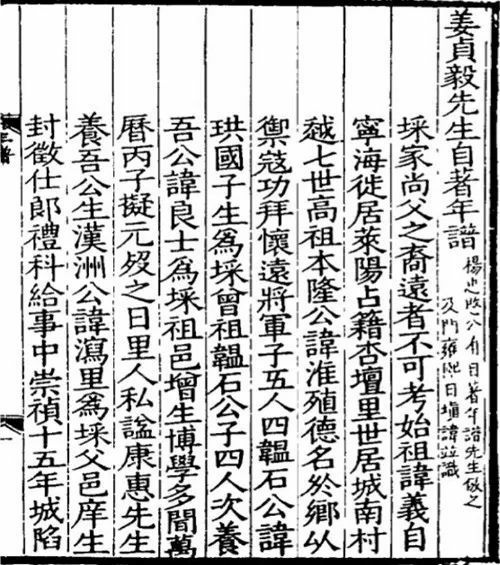 姜貞毅先生自著年譜
楊忠愍公有自著年譜先生倣之
及門雍熙日諱竝識
埰家尚父之裔遠者不可考始祖諱義自
寧海徙居萊陽占籍杏壇里世居城南村
越七世高祖本隆公諱淮殖德名於鄉以
禦寇功拜懷遠將軍子五人四韞石公諱
珙國子生爲埰曾祖韞石公子四人次養
吾公諱良士爲埰祖邑增生博學多聞萬
曆丙子擬元歿之日里人私諡康惠先生
養吾公生漢洲公諱瀉里爲埰父邑庠生
封徵仕郎禮科給事中崇禎十五年城陷